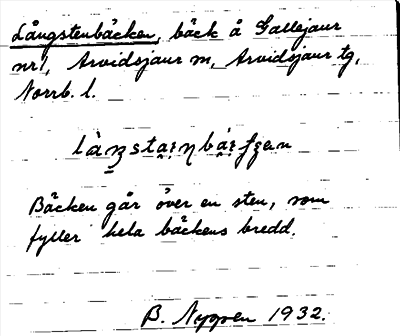 Långstenbäcken, bäck å Gallejaur
nr 1, Arvidsjaur sn, Arvidsjaur tg,
Norrb. l.
Bäcken går över en sten, som
fyller hela bäckens bredd.
B. 1932.